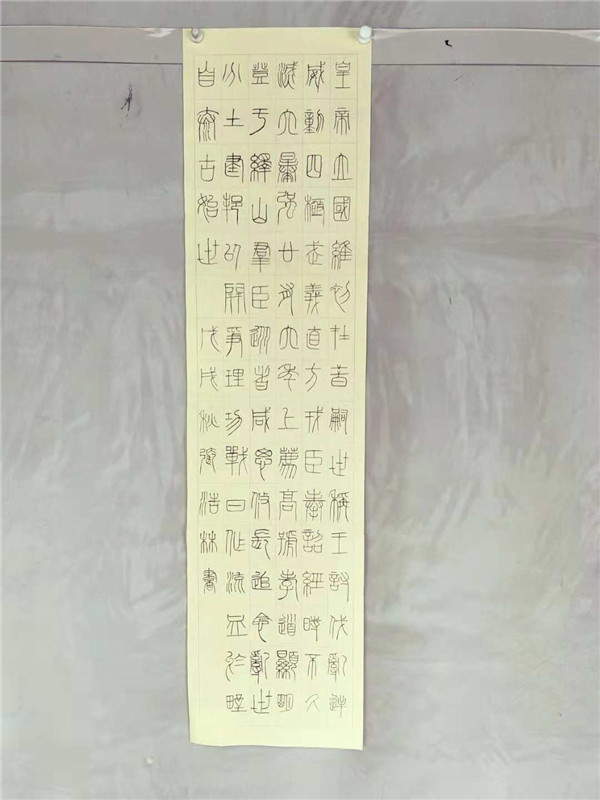 皇帝立國維初在昔嗣世稱王討伐亂逆
威動四極武義直方戎臣奉詔經時不久
滅六暴強廿有六年上薦高號孝道顯明
登于繹山羣臣從者咸思攸長追念亂世
分土建邦以開爭理功戰日作流血於野
自泰古始世 戊戌秋張浩林書